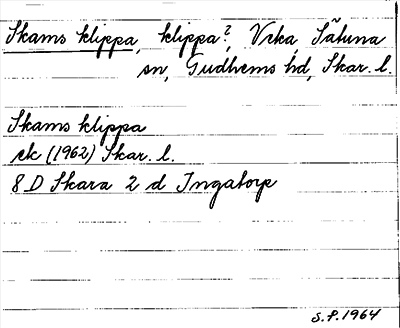 Skams klippa, klippa?, Vrka, Sätuna
sn, Gudhems hd, Skar. l.
Skams klippa
rk (1962) Skar. l.
8 D Skara 2 d Ingatorp
S.F. 1964